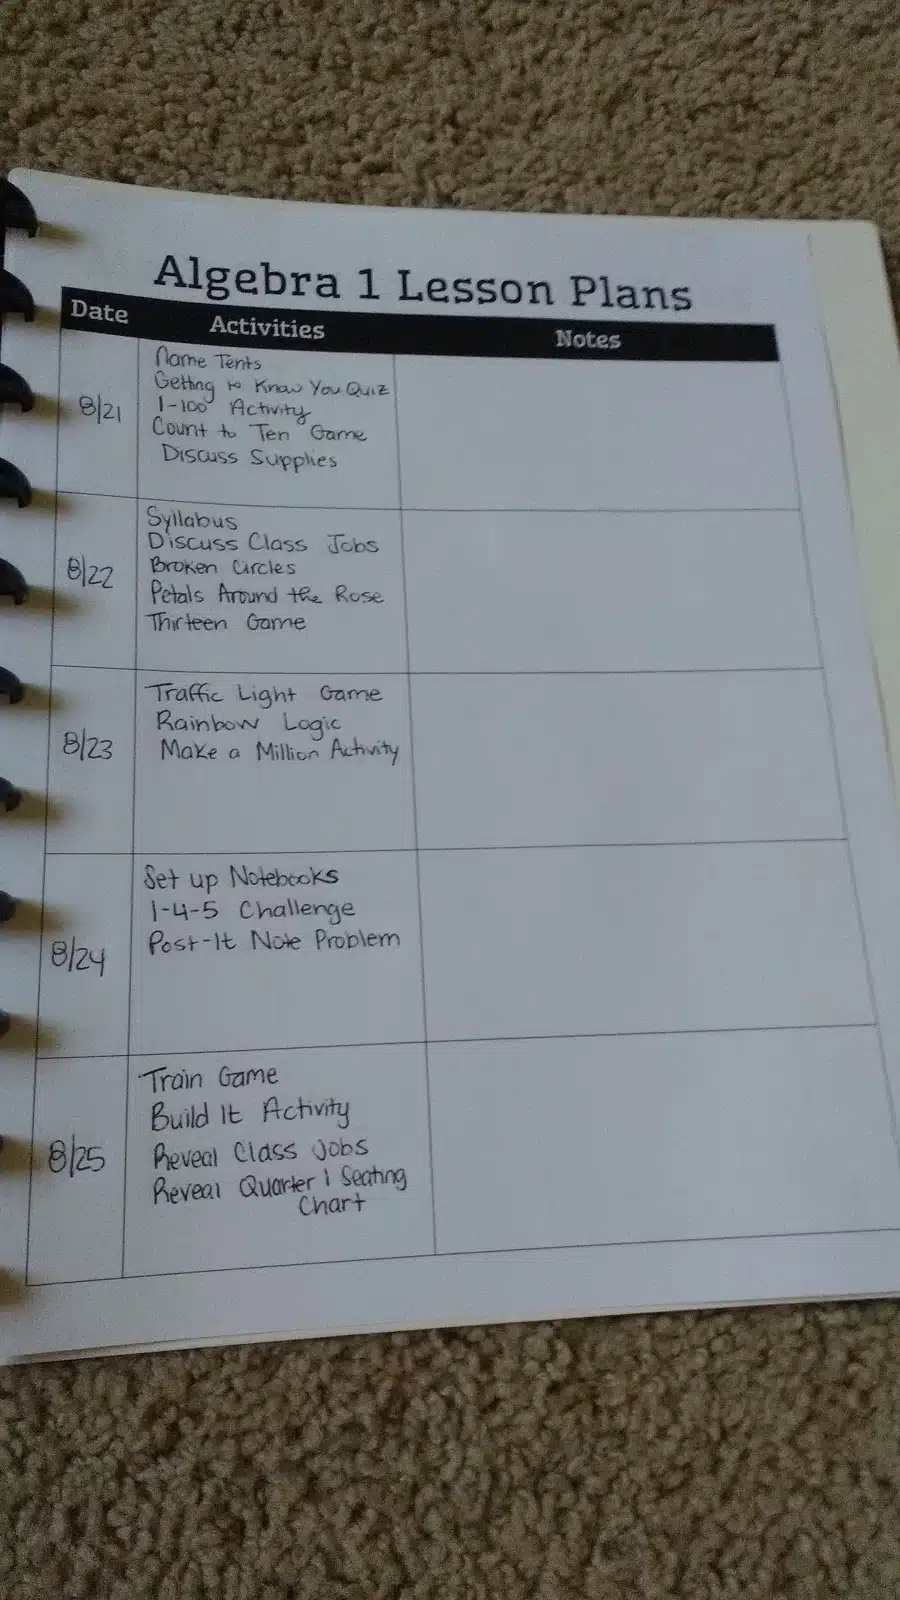 Algebra 1 Lesson Plans
Date Activities Notes
8/21
Name Tents
Getting to Know You Quiz
1-100 Activity
Count to Ten Game
Discuss Supplies
8/22
Syllabus
Discuss Class Jobs
Broken Circles
Petals Around the Rose
Thirteen Game
8/23
Traffic Light Game
Rainbow Logic
Make a Million Activity
8/24
Set up Notebooks
1-4-5 Challenge
Post-It Note Problem
8/25
Train Game
Build It Activity
Reveal Class Jobs
Reveal Quarter 1 Seating
Chart